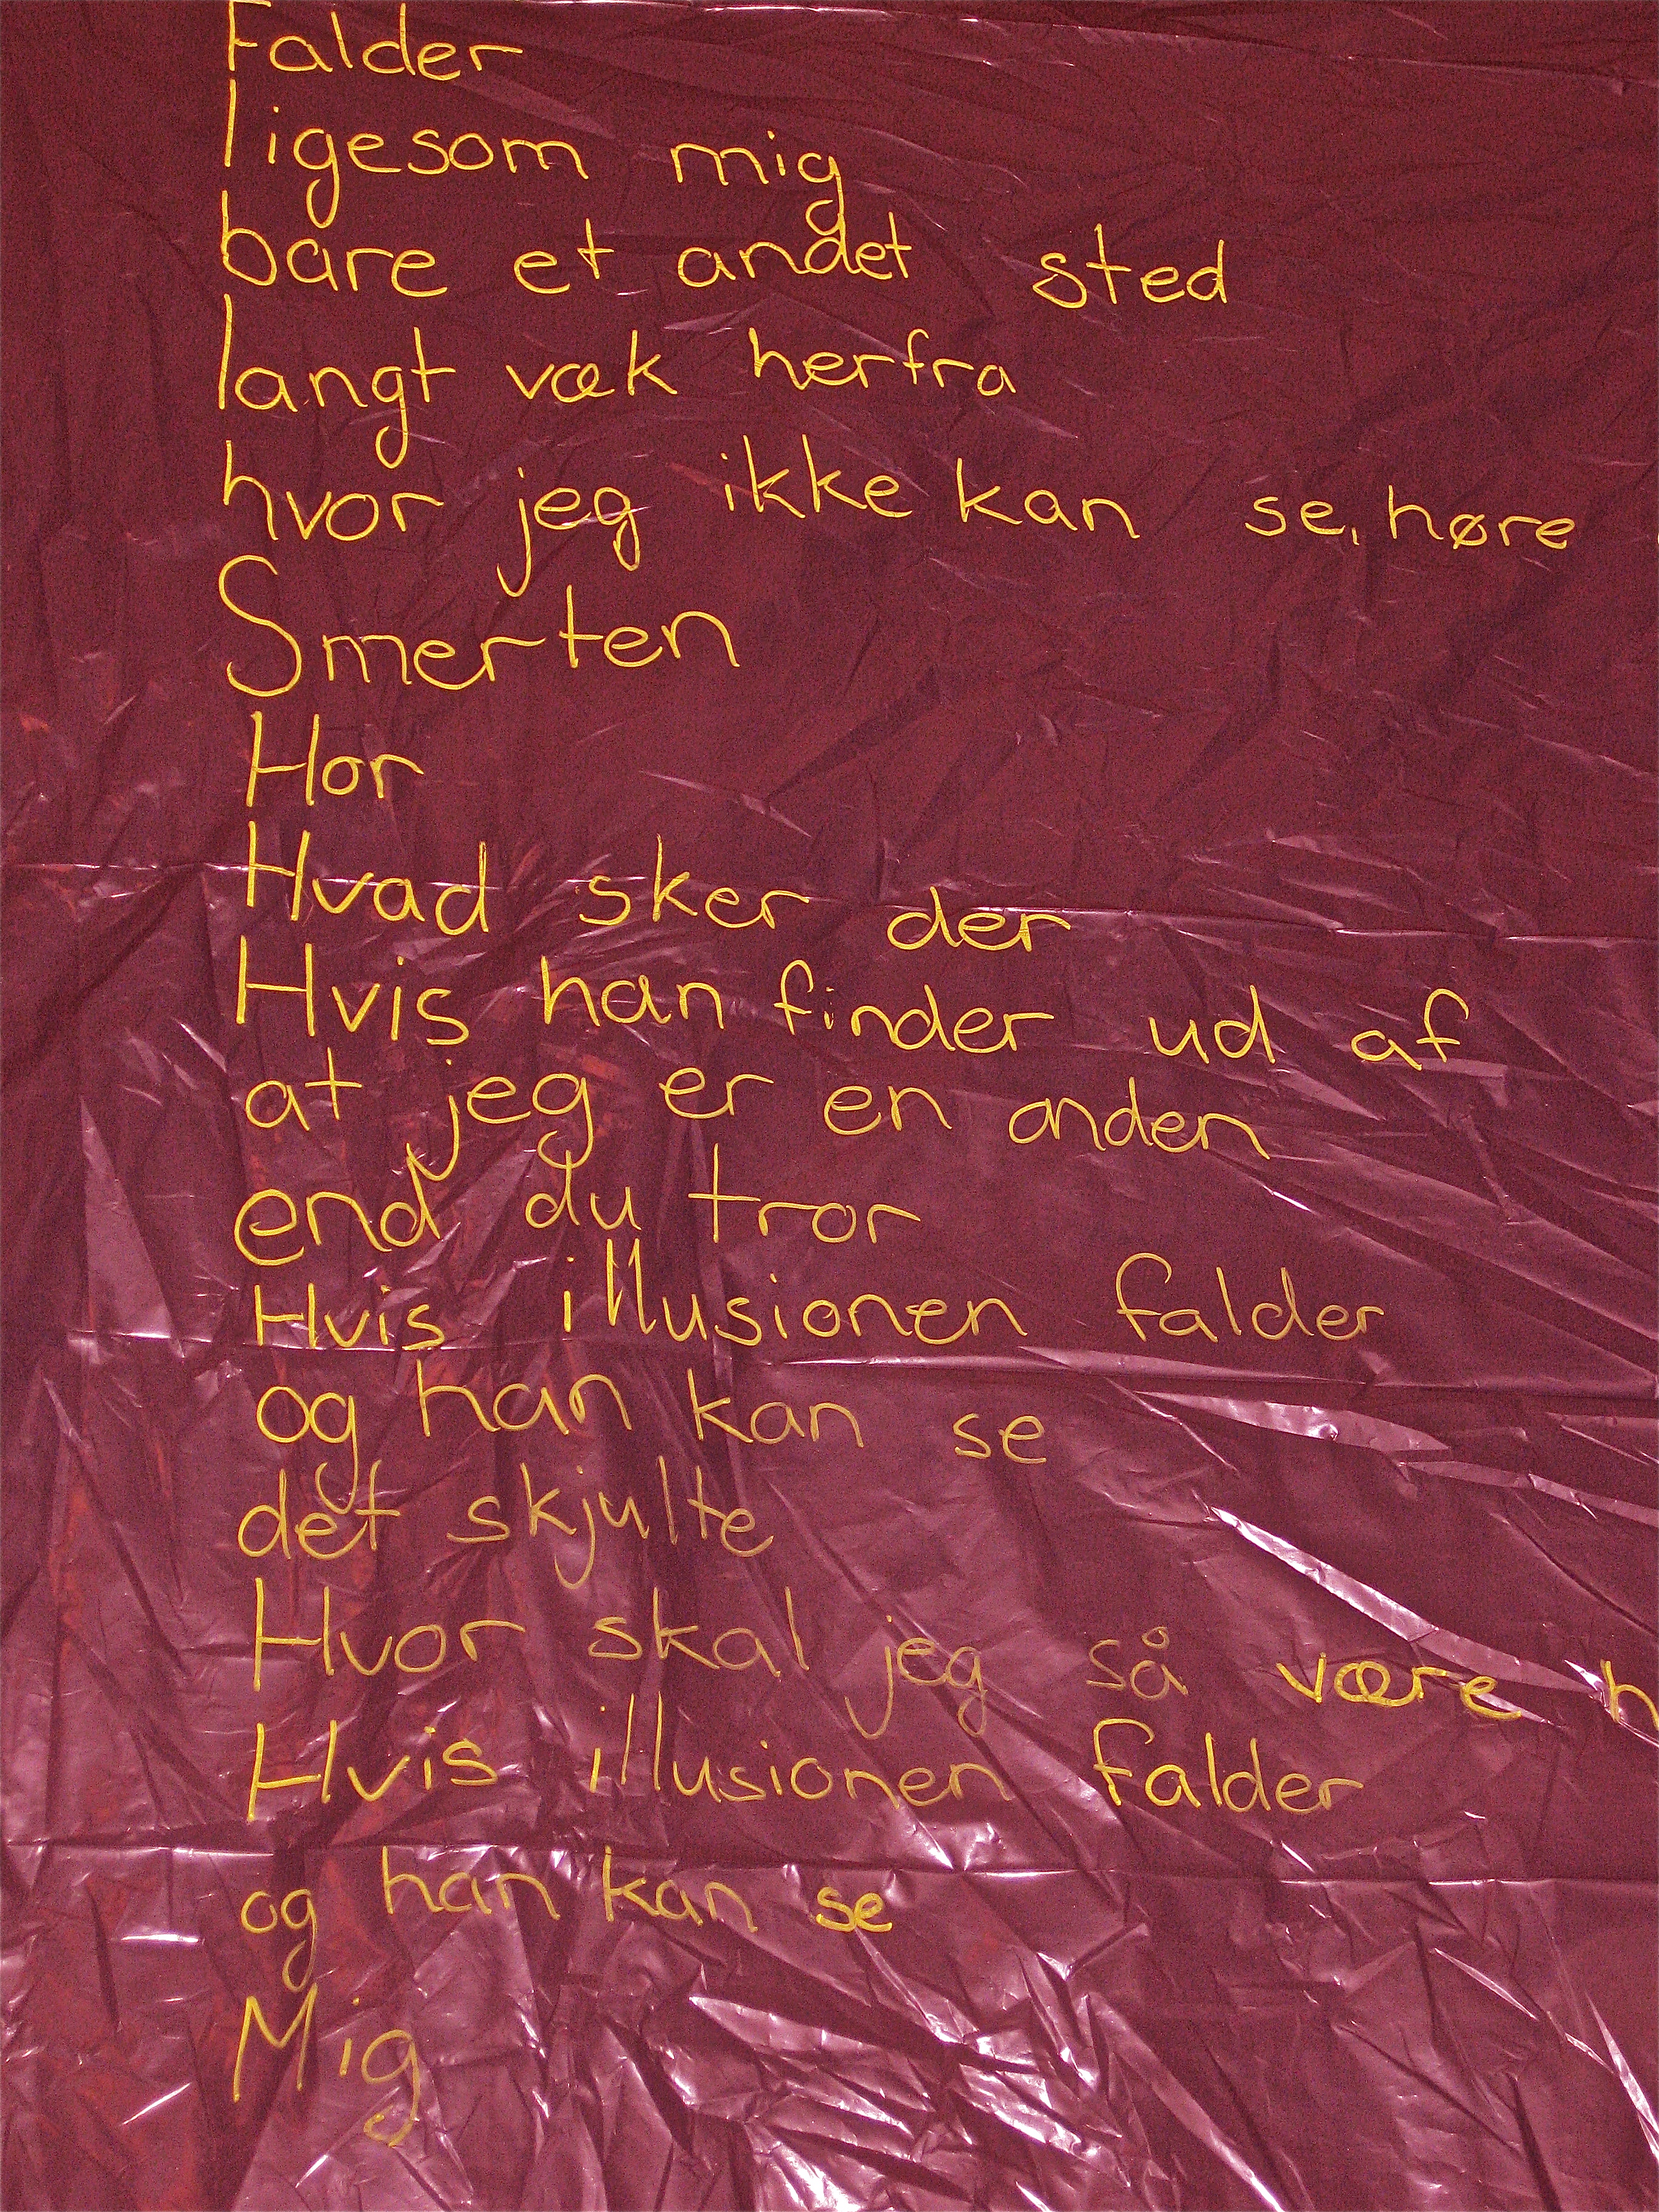 Falder
ligesom mig
bare et andet sted
langt væk herfra
hvor jeg ikke kan se, høre
Smerten
Hor
Hvad sker der
Hvis han finder ud af
at jeg er en anden
end du tror
Hvis illusionen falder
og han kan se
det skjulte
Hvor skal jeg så være
Hvis illusionen falder
og han kan se
Mig